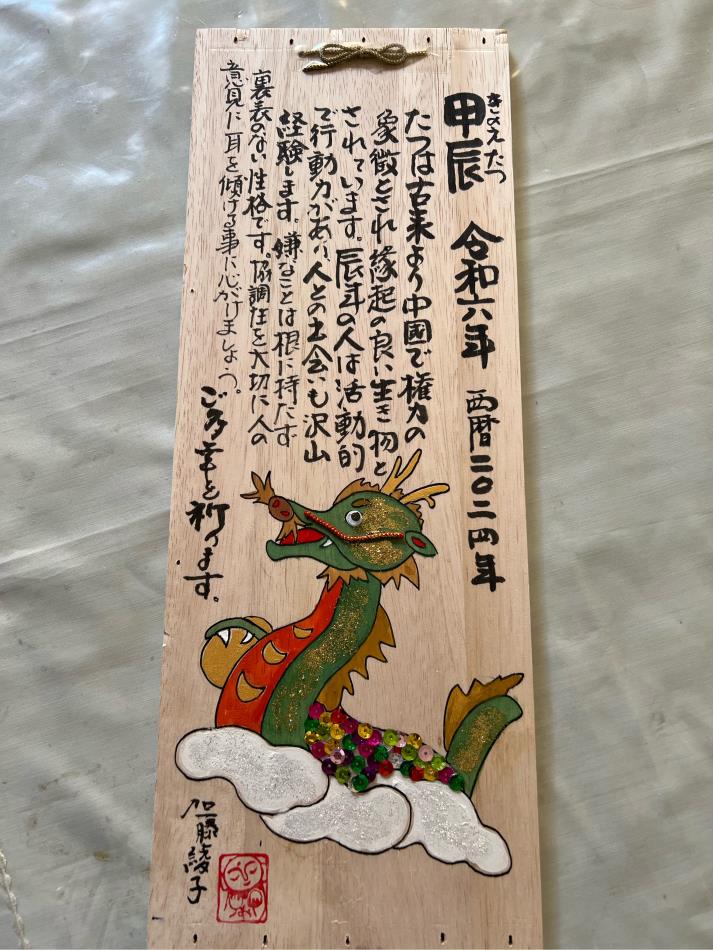 甲辰 令和六年 西暦二〇二四年
きのえたつ
たつは古来より中国で権力の
象徴とされ縁起の良い生き物と
されています。辰年の人は活動的
で行動力があり、人との出会いも沢山
経験します。嫌なことは根に持たず
裏表のない性格です。協調性を大切に人の
意見に耳を傾ける事に心がけましょう。
ご多幸を祈ります。
加藤綾子